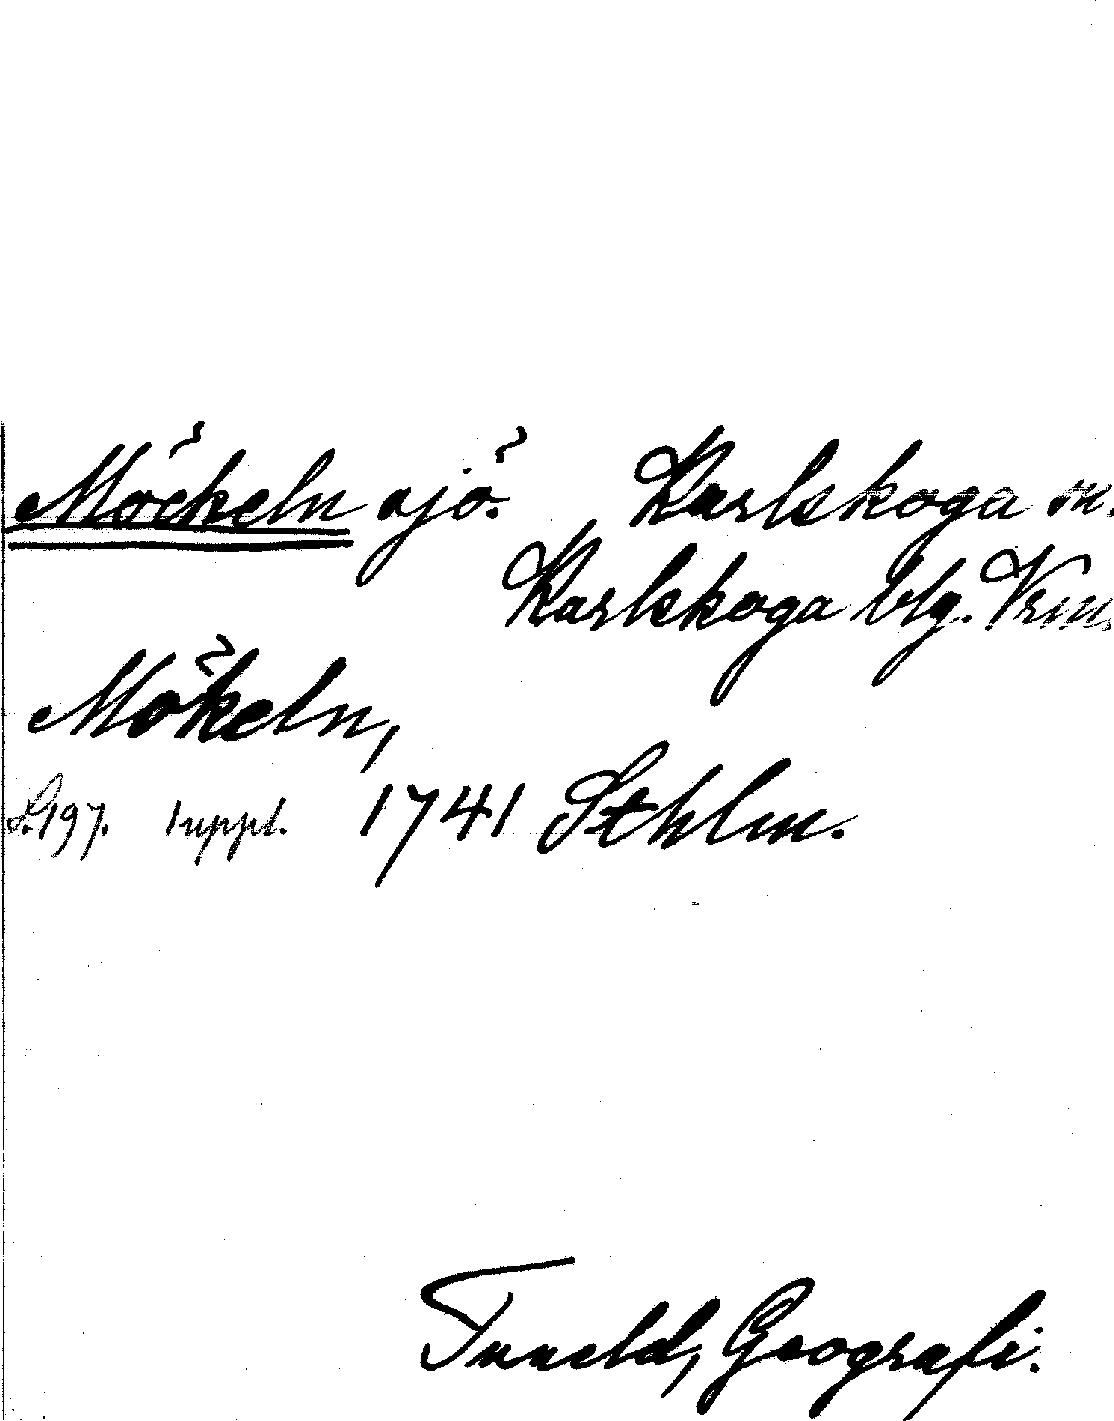 Möckeln sjö. Karlskoga sn.
Karlskoga blg. Vrml.
Mökeln,
S. 197. suppl. 1741 Sthlm.
Tuneld, Geografi.